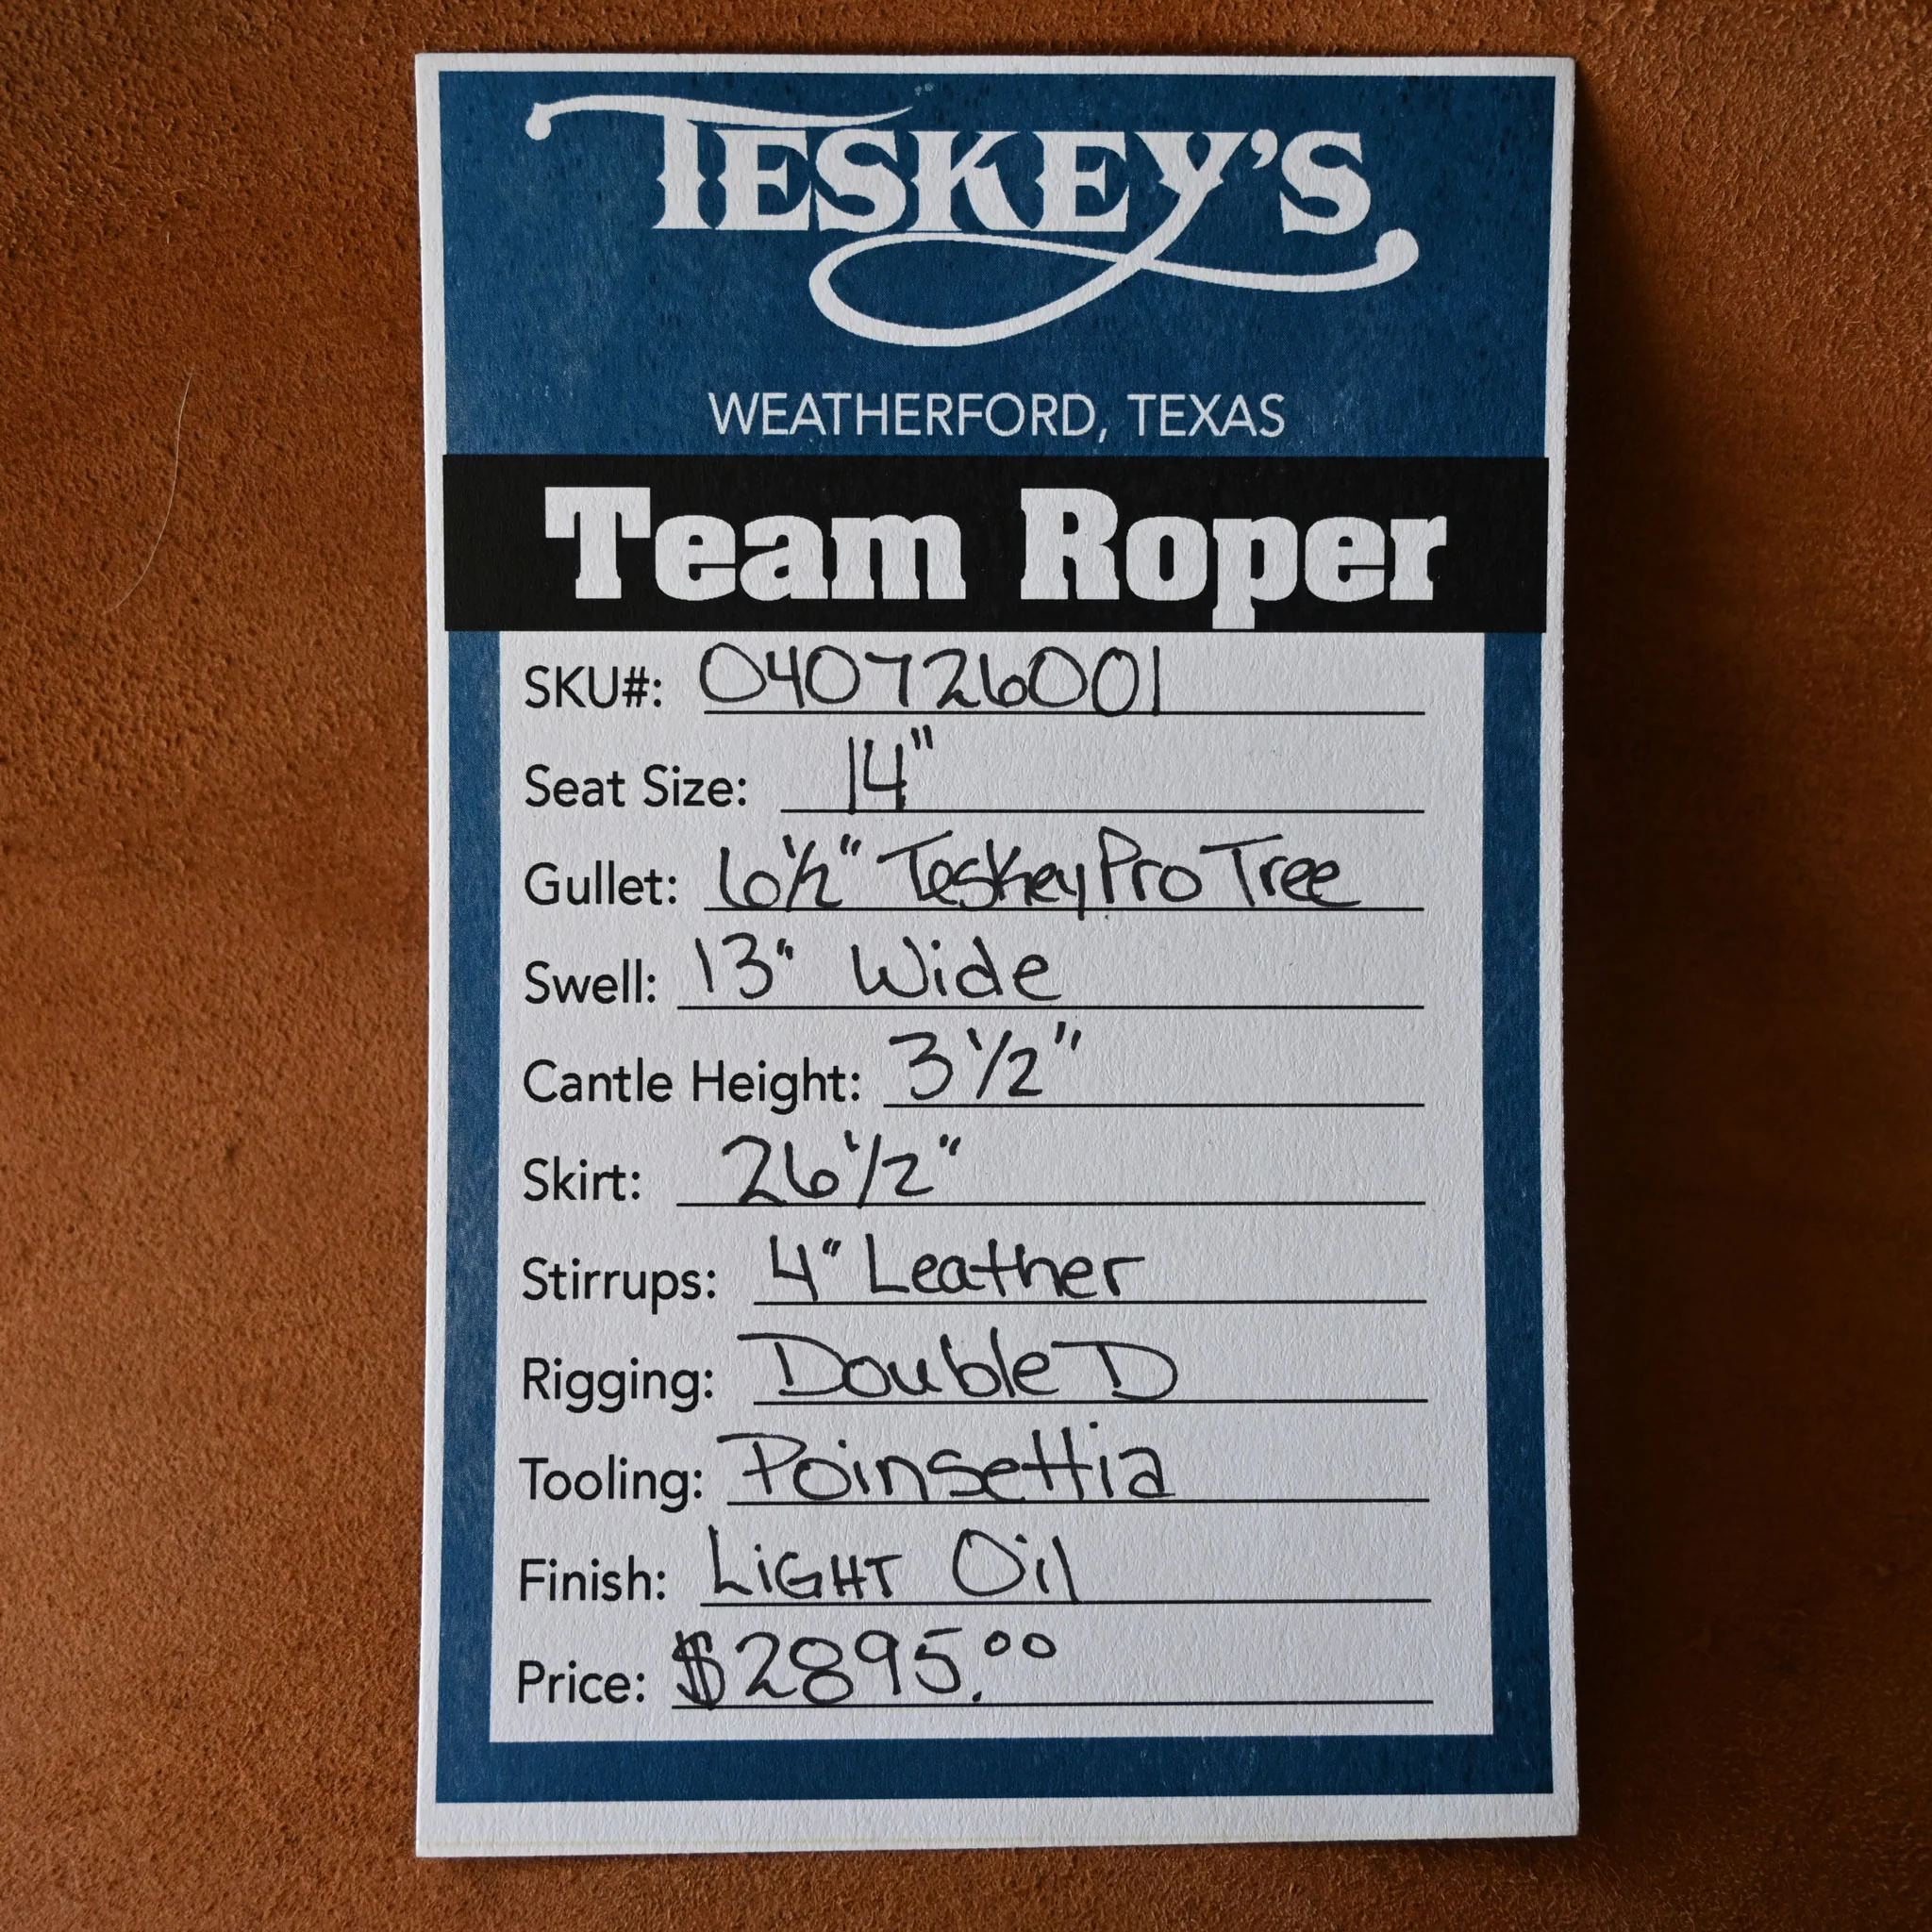 TESKEY'S
WEATHERFORD, TEXAS
Team Roper
SKU#: 040726001
Seat Size: 14"
Gullet: 6 1/2" Teskey Pro Tree
Swell: 13" Wide
Cantle Height: 3 1/2"
Skirt: 26 1/2"
Stirrups: 4" Leather
Rigging: Double D
Tooling: Poinsettia
Finish: LiGHT Oil
Price: $2895.00